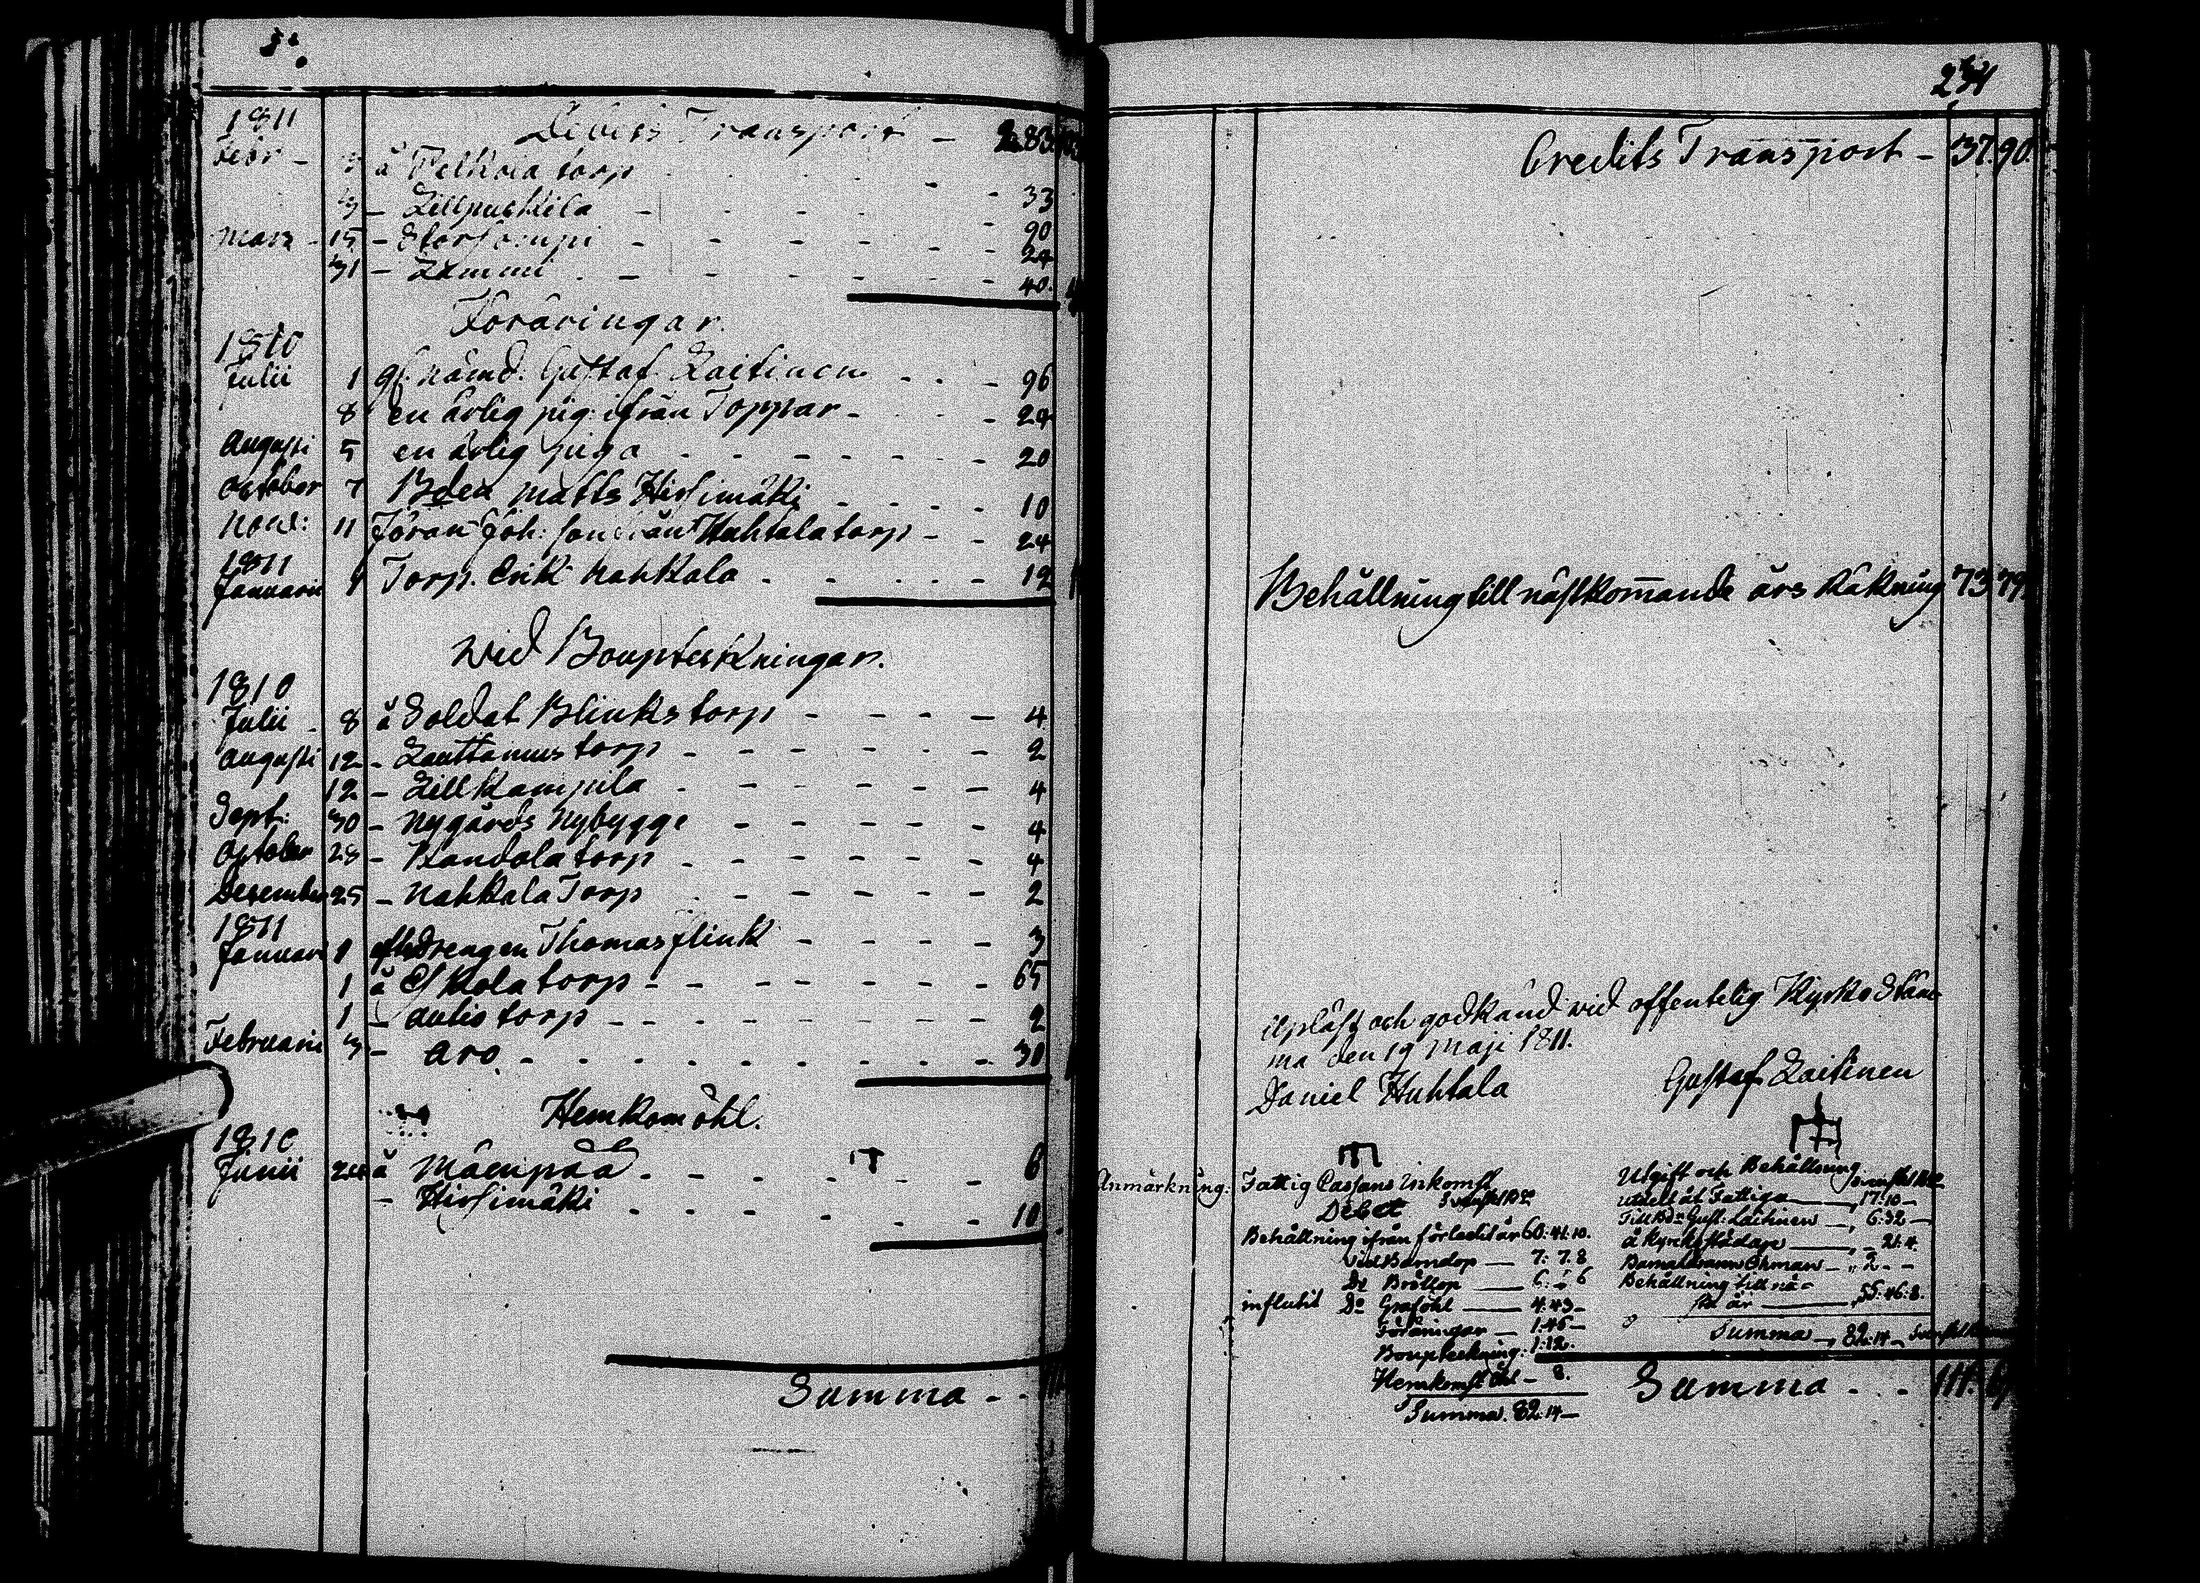 1811 Debets Transport - 283.
Febr - 3 å Pelkola torp - - -
3 - Lillpuckila - - - - 33
Mars - 15 - Storsompi - - - - 90
31 - Lammi - - - - 24
40.
Föräringar.
1810
Julii 1 gf. Nämd. Gustaf Laitinen - - 96
8 en ärlig pig: ifrån Toppar - - 24
Augusti 5 en ärlig piga - - - - 20
October 7 Bden Matts Hirsimäki - - - 10
Nove: 11 Jöran Joh: son från Huhtala torp - - 24
1811
Januarii 1 Torp. Erik Nahkala - - - - 12
Wid Boupteckningar.
1810
Julii - 8 å Soldat Blinks torp - - - - 4
Augusti 12 - Lauttamus torp - - - - 2
12 - Lill Kampila - - - - 4
Sept: 30 - Nygårds Nybygge - - - - 4
October 28 - Kandola torp - - - - 4
Desember 25 - Nahkala Torp - - - - 2
1811
Januari 1 Thomas flink - - - - 3
1 å Eskola torp - - - - 65
1 - Autio torp - - - - 2
Februarii 3 - Aro - - - - 30
Hemkomöhl.
1810
Junii 24 å Mäenpää - - - - 6
- Hirsimäki - - - - 10
Summa - -
234
Credits Transport - 37. 90.
Behållning till nästkommande års Räkning 73 79
Upläst och godkänd wid offentelig Kyrko Stäm-
ma den 19 Maji 1811.
Daniel Huhtala Gustaf Laitinen
Anmärkning: Fattig Cassans Inkomst
Debet
Behållning ifrån förledit år 60: 41: 10.
vid Barndop — 7: 7. 8
Do Bröllop — 6: - 6
influtit Do Graföhl — 4: 43 -
Föräringar — 1: 45 -
Boupteckning: 1: 12.
Hemkomst öhl - 8.
Summa. 82: 14 —
Utgift och Behållning
utdelt åt Fattiga — 17: 10 -
Till Bdn Gust: Laitinen — 6: 32 -
å Kyrkostädare — 21: 4.
Öhman — 2 - -
Behållning till nä-
sta år — 55: 46: 8.
Summa — 82: 14 -
Summa - - - 111.